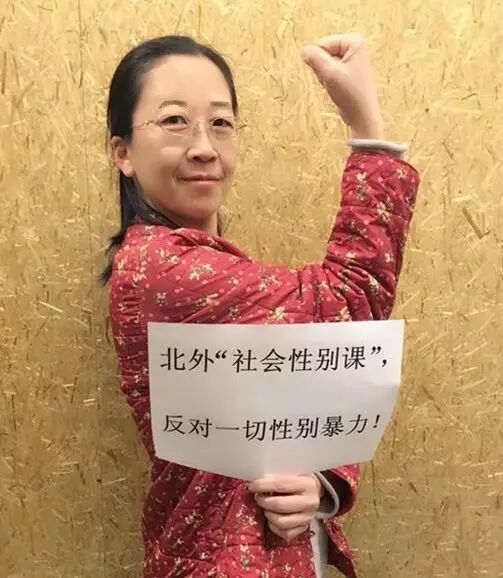 北外“社会性别课”,
反对一切性别暴力!